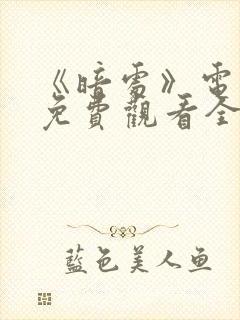 《暗雷》雷
免費觀看全
藍色美人鱼